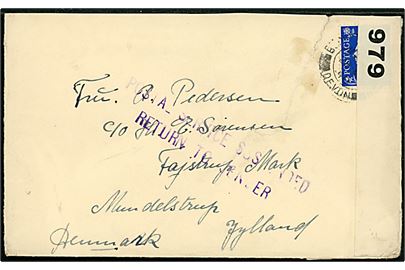 979
POSTAGE
DEVON
Fru. B. Pedersen
c/o C. Sørensen
POSTAL SERVICE SUSPENDED
RETURN TO SENDER
Fajstrup Mark
Mundelstrup
Jylland
Denmark